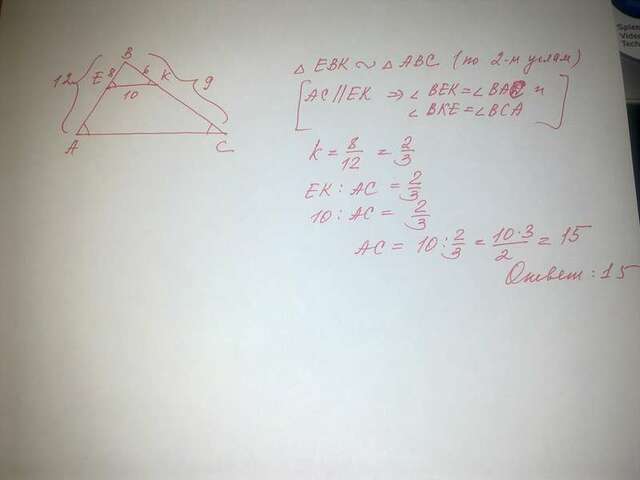 B
12 E 8 6 K 9
10
A C
△ EBK ∼ △ ABC (по 2-м углам)
[AC || EK ⇒ ∠ BEK = ∠ BAC и
∠ BKE = ∠ BCA]
k = 8/12 = 2/3
EK : AC = 2/3
10 : AC = 2/3
AC = 10 : 2/3 = 10·3/2 = 15
Ответ : 15
Video
Tech